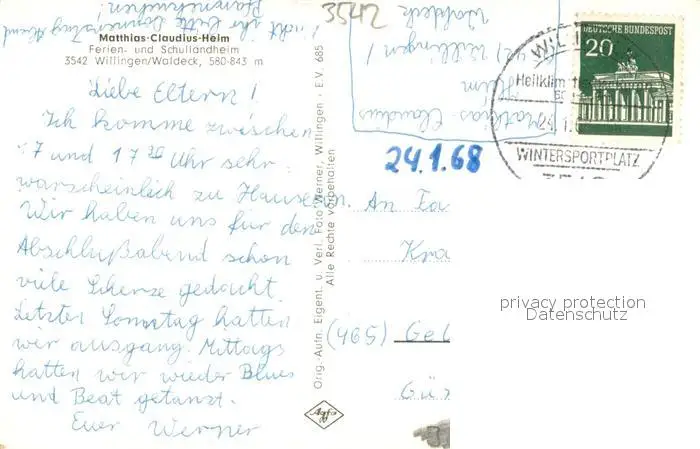 3542
Matthias-Claudius-Heim
Ferien- und Schullandheim
3542 Willingen/Waldeck, 580-843 m
Liebe Eltern!
Ich komme zwischen
17 und 17 30 Uhr sehr
warscheinlich zu Hause an.
Wir haben uns für den
Abschlußabend schon
viele Scherze gedacht.
Letzten Sonnstag hatten
wir ausgang. Mittags
hatten wir wieder Blues
und Beat getanzt.
Euer Werner
Orig.-Aufn. Eigent. u. Verl. Foto Werner, Willingen · E.V. 685
Alle Rechte vorbehalten
Agfa
Matthias Claudius
Heim
Willingen
Waldeck
DEUTSCHE BUNDESPOST
20
WIL
Heilklim
24.1.
WINTERSPORTPLATZ
24.1.68
An Fa
Kra
(465) Gel
Gü
privacy protection
Datenschutz